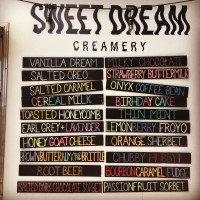 SWEET DREAM
CREAMERY
VANILLA DREAM
SALTED OREO
SALTED CARAMEL
CEREAL MILK
TOASTED HONEYCOMB
EARL GREY+LAVENDER
HONEY GOAT CHEESE
BROWN BUTTER ALMOND BRITTLE
ROOT BEER
MILKY CHOCOLATE
STRAWBERRY BUTTERMILK
ONYX COFFEE BEAN
BIRTHDAY CAKE
THIN MINT
LEMONBERRY FROYO
ORANGE SHERBET
CHUBBY
BOURBON CARAMEL FUDGE
PASSIONFRUIT SORBET